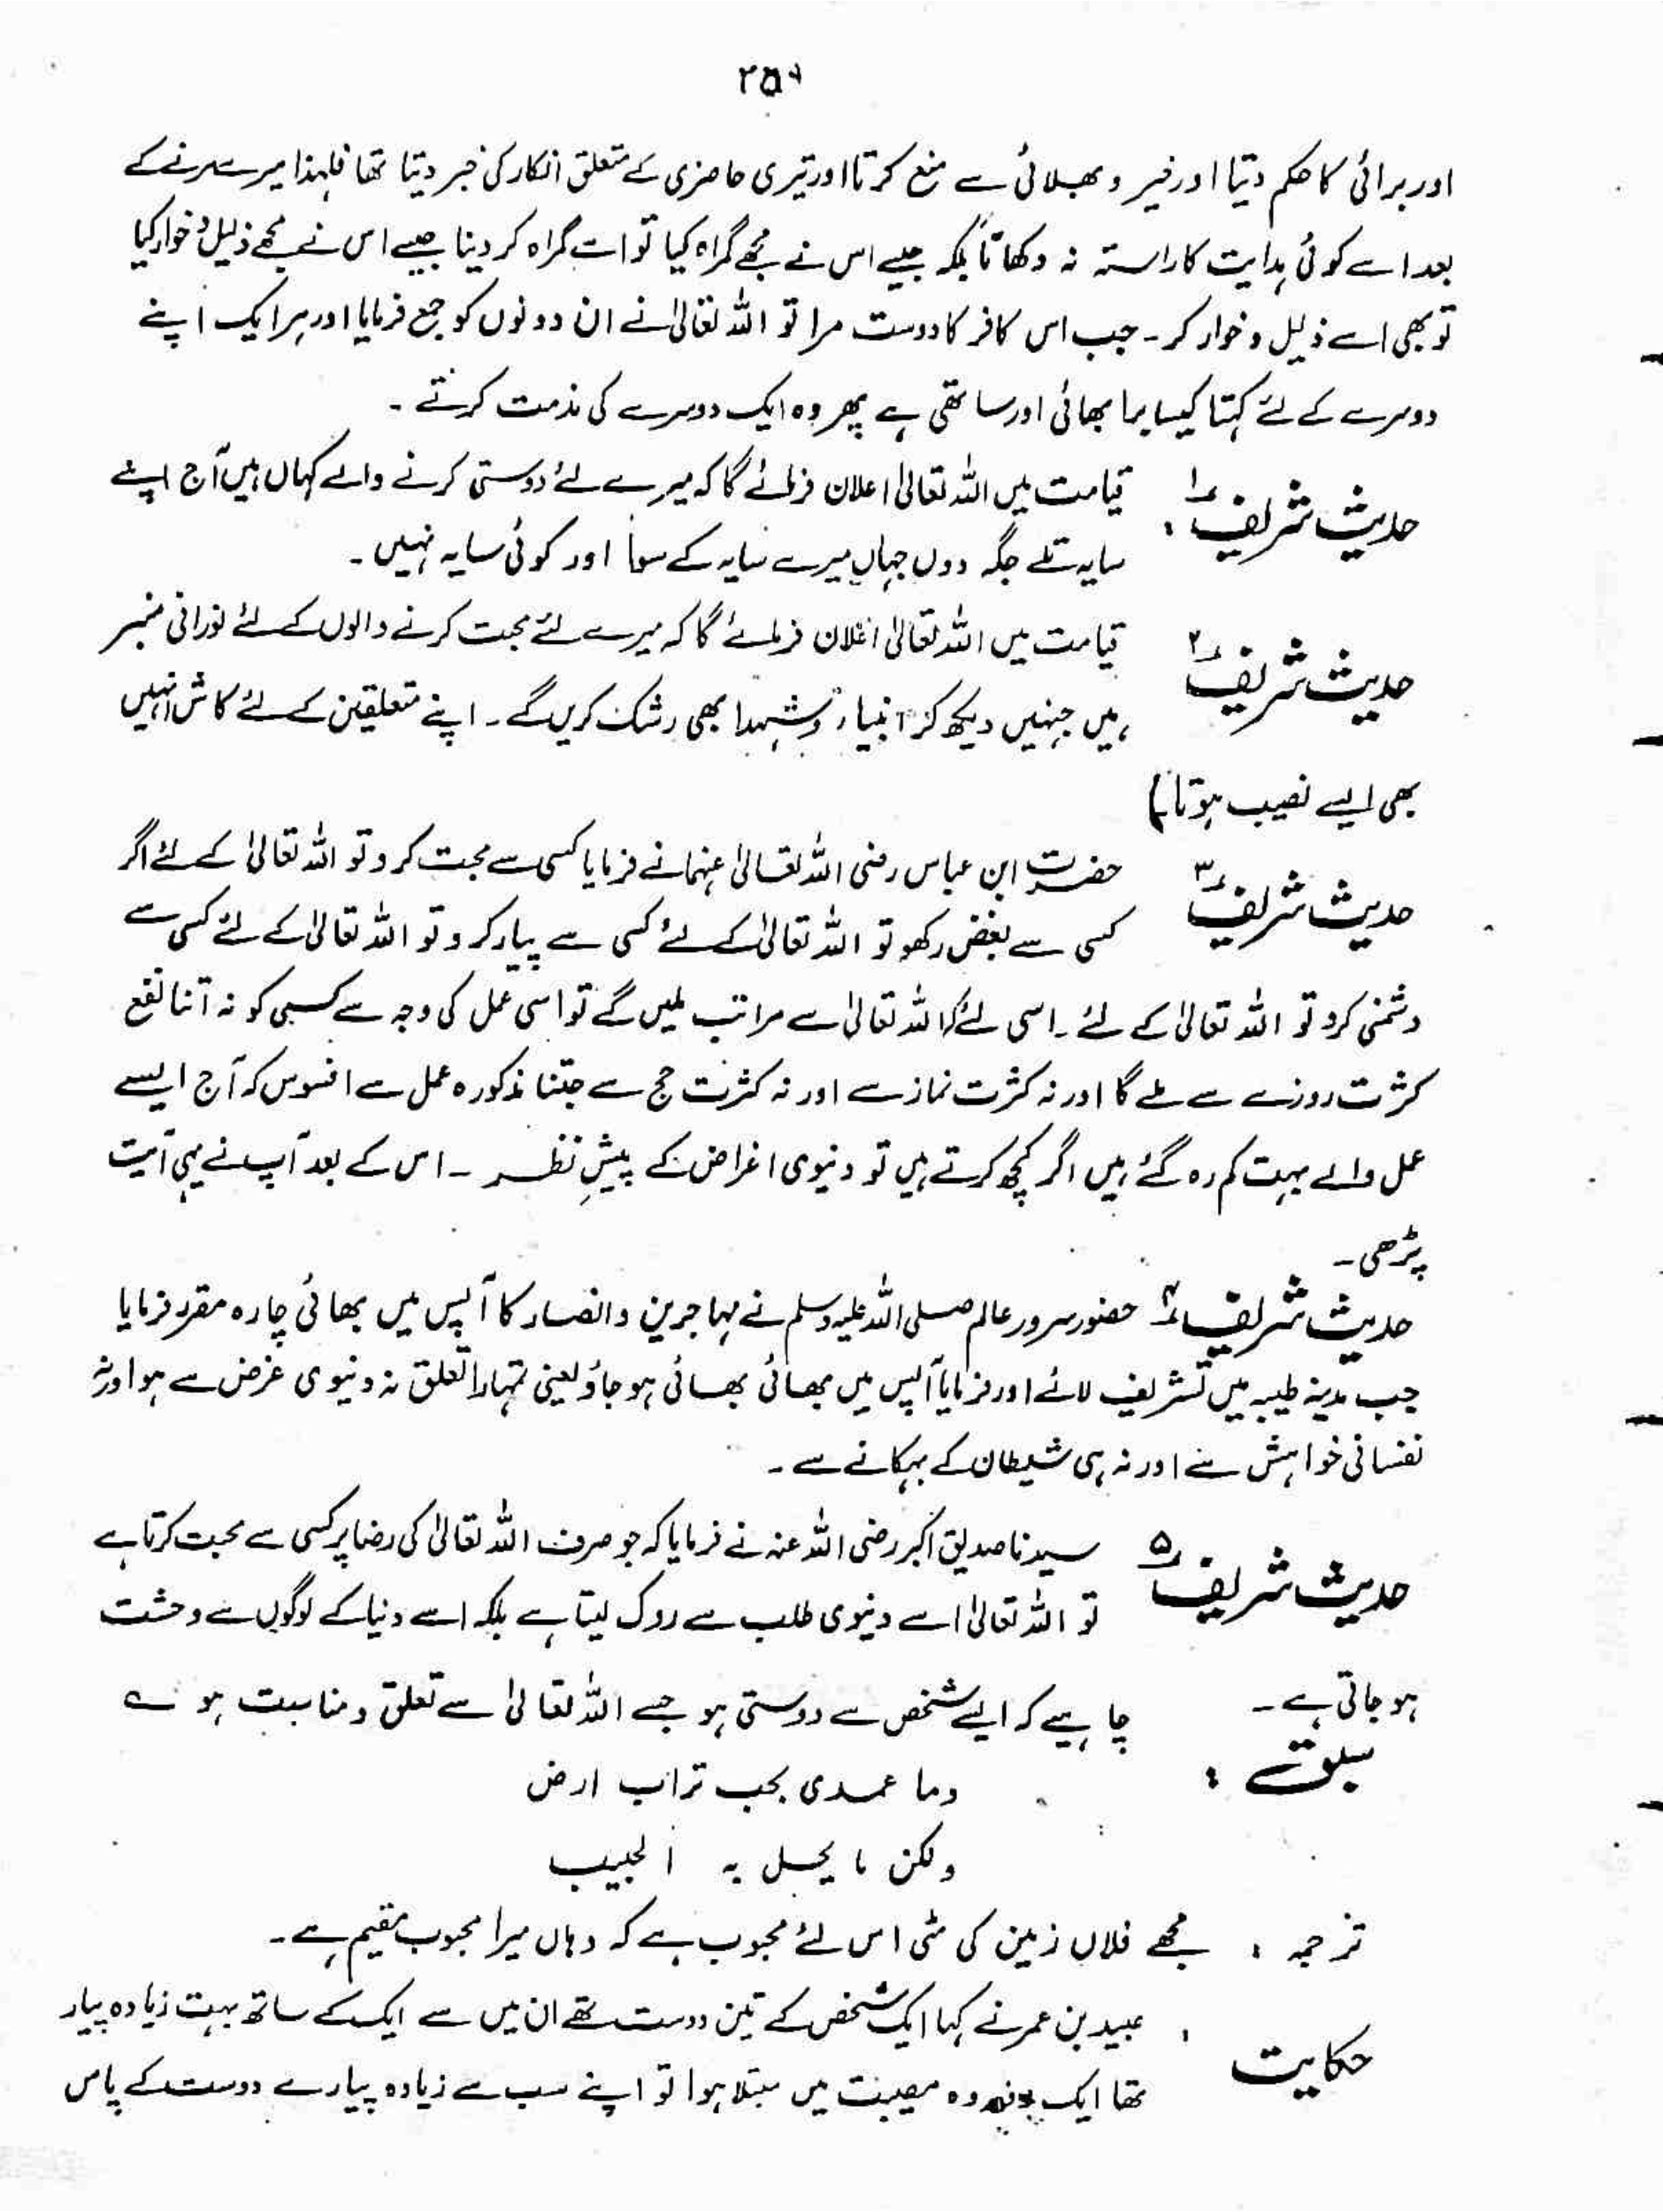 اور برائی کا حکم دیتا اور خیر و بھلائی سے منع کرتا اور تیری حاضری کے متعلق انکار کی خبر دیتا تھا فلہذا میرے مرنے کے
بعد اسے کوئی ہدایت کا راستہ نہ دکھانا بلکہ جیسے اس نے مجھے گمراہ کیا تو اسے گمراہ کر دینا جیسے اس نے مجھے ذلیل و خوار کیا
تو بھی اسے ذلیل و خوار کر ۔ جب اس کافر کا دوست مرا تو اللہ تعالیٰ نے ان دونوں کو جمع فرمایا اور ہر ایک اپنے
دوسرے کے لئے کہتا کیسا برا بھائی اور ساتھی ہے پھر وہ ایک دوسرے کی مذمت کرتے ۔
حدیث شریف ۱ : قیامت میں اللہ تعالیٰ اعلان فرمائے گا کہ میرے لئے دوستی کرنے والے کہاں ہیں آج اپنے
سایہ تلے جگہ دوں جہاں میرے سایہ کے سوا اور کوئی سایہ نہیں ۔
حدیث شریف ۲ قیامت میں اللہ تعالیٰ اعلان فرمائے گا کہ میرے لئے محبت کرنے والوں کے لئے نورانی منبر
ہیں جنہیں دیکھ کر انبیاء و شہدا بھی رشک کریں گے ۔ اپنے متعلقین کے لئے کاش انہیں
بھی ایسے نصیب ہوتا)
حدیث شریف ۳ حضرت ابن عباس رضی اللہ تعالیٰ عنہما نے فرمایا کسی سے محبت کرو تو اللہ تعالیٰ کے لئے اگر
کسی سے بغض رکھو تو اللہ تعالیٰ کے لئے کسی سے پیار کرو تو اللہ تعالیٰ کے لئے کسی سے
دشمنی کرو تو اللہ تعالیٰ کے لئے ۔ اسی لئے کہ اللہ تعالیٰ سے مراتب ملیں گے تو اسی عمل کی وجہ سے کسی کو نہ اتنا نفع
کثرت روزے سے ملے گا اور نہ کثرت نماز سے اور نہ کثرت حج سے جتنا مذکورہ عمل سے افسوس کہ آج ایسے
عمل والے بہت کم رہ گئے ہیں اگر کچھ کرتے ہیں تو دنیوی اغراض کے پیشِ نظر ۔ اس کے بعد آپ نے یہی آیت
پڑھی ۔
حدیث شریف ۴ حضور سرور عالم صلی اللہ علیہ وسلم نے مہاجرین و انصار کا آپس میں بھائی چارہ مقرر فرمایا
جب مدینہ طیبہ میں تشریف لائے اور فرمایا آپس میں بھائی بھائی ہو جاؤ یعنی تمہارا تعلق نہ دنیوی غرض سے ہو اور نہ
نفسانی خواہش سے اور نہ ہی شیطان کے بہکانے سے ۔
حدیث شریف ۵ سیدنا صدیق اکبر رضی اللہ عنہ نے فرمایا کہ جو صرف اللہ تعالیٰ کی رضا پر کسی سے محبت کرتا ہے
تو اللہ تعالیٰ اسے دنیوی طلب سے روک لیتا ہے بلکہ اسے دنیا کے لوگوں سے وحشت
ہو جاتی ہے ۔
سبق : چاہیے کہ ایسے شخص سے دوستی ہو جسے اللہ تعالیٰ سے تعلق و مناسبت ہو ؎
وما عهدی بحب تراب ارض
ولکن ما یحل بہ الحبیب
ترجمہ : مجھے فلاں زمین کی مٹی اس لئے محبوب ہے کہ وہاں میرا محبوب مقیم ہے ۔
حکایت : عبید بن عمر نے کہا ایک شخص کے تین دوست تھے ان میں سے ایک کے ساتھ بہت زیادہ پیار
تھا ایک دفعہ وہ مصیبت میں مبتلا ہوا تو اپنے سب سے زیادہ پیارے دوست کے پاس